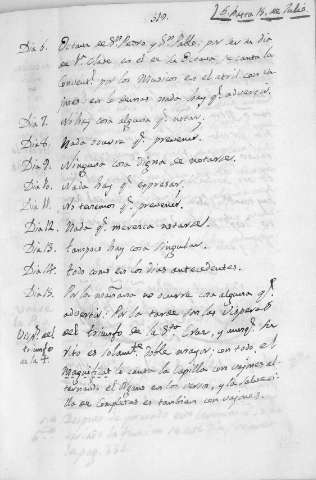 319.
6. hasta 15. de Julio
Dia 6. Octava de Sn. Pedro y Sn. Pablo: por ser su dia
de 1a. Clase es de en la Octava, se canta la
por los Musicos en el atril con ca-
xones: en lo demas nada hay q.e advertir.
Dia 7. No hay cosa alguna q.e notar.
Dia 8. Nada ocurre q.e prevenir.
Dia 9. Ninguna cosa digna de notarse.
Dia 10. Nada hay q.e expresar.
Dia 11. No tenemos q.e prevenir.
Dia 12. Nada q.e meresca notarse.
Dia 13. Tampoco hay cosa singular.
Dia 14. Todo como en los dias antecedentes.
Dia 15. Por la mañana no ocurre cosa alguna q.e
advertir: Por la tarde son las Visperas
Visp.s del del triunfo de la Sta. Cruz, y aunq.e su
triunfo rito es solam.te doble mayor: con todo, el
de la †. Magnificat le canta la Capilla con caxones al-
ternando el Organo en los versos, y la
en Completas es tambien con caxones.